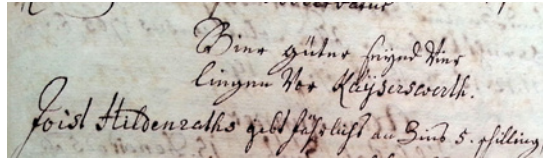 Vier güter seynd Vier
lingen Vor Kaÿserswerth.
Joist Hildenraths gibt jährlichs an Zins 5. schilling,